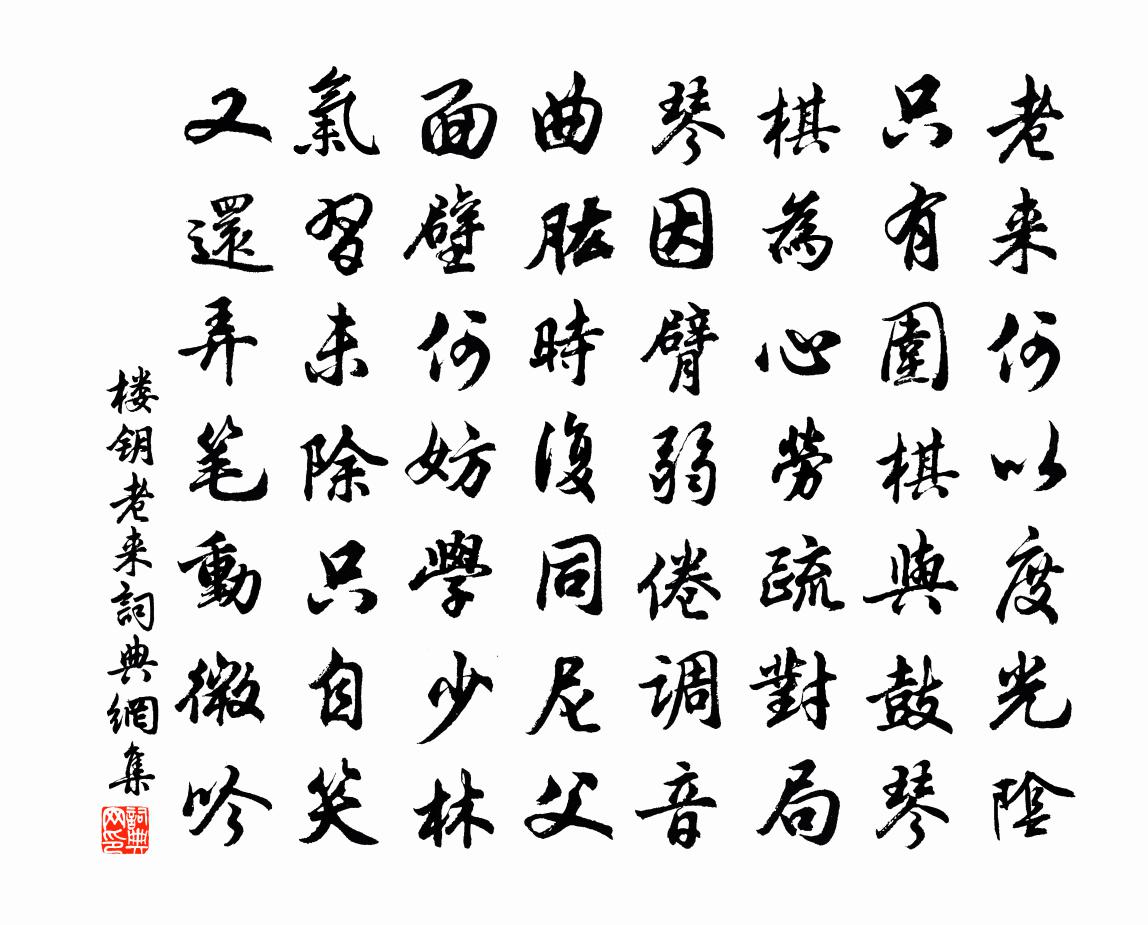 老来何以度光陰
只有圍棋與鼓琴
棋為心勞疏對局
琴因臂弱倦调音
曲肱時復同尼父
面壁何妨學少林
氣習未除只自笑
又還弄笔動微吟
楼钥老来詞典網集
詞典网印